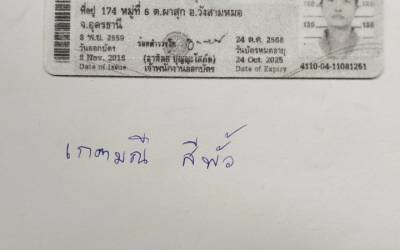 ที่อยู่ 174 หมู่ที่ 6 ต.ผาสุก อ.วังสามหมอ
จ.อุดรธานี
8 พ.ย. 2559
วันออกบัตร
8 Nov. 2016
Date of Issue
เจ้าพนักงานออกบัตร
24 ต.ค. 2568
วันบัตรหมดอายุ
24 Oct. 2025
Date of Expiry
4110-04-11081261
180
170
160
150
เกศามณี สีพั้ว